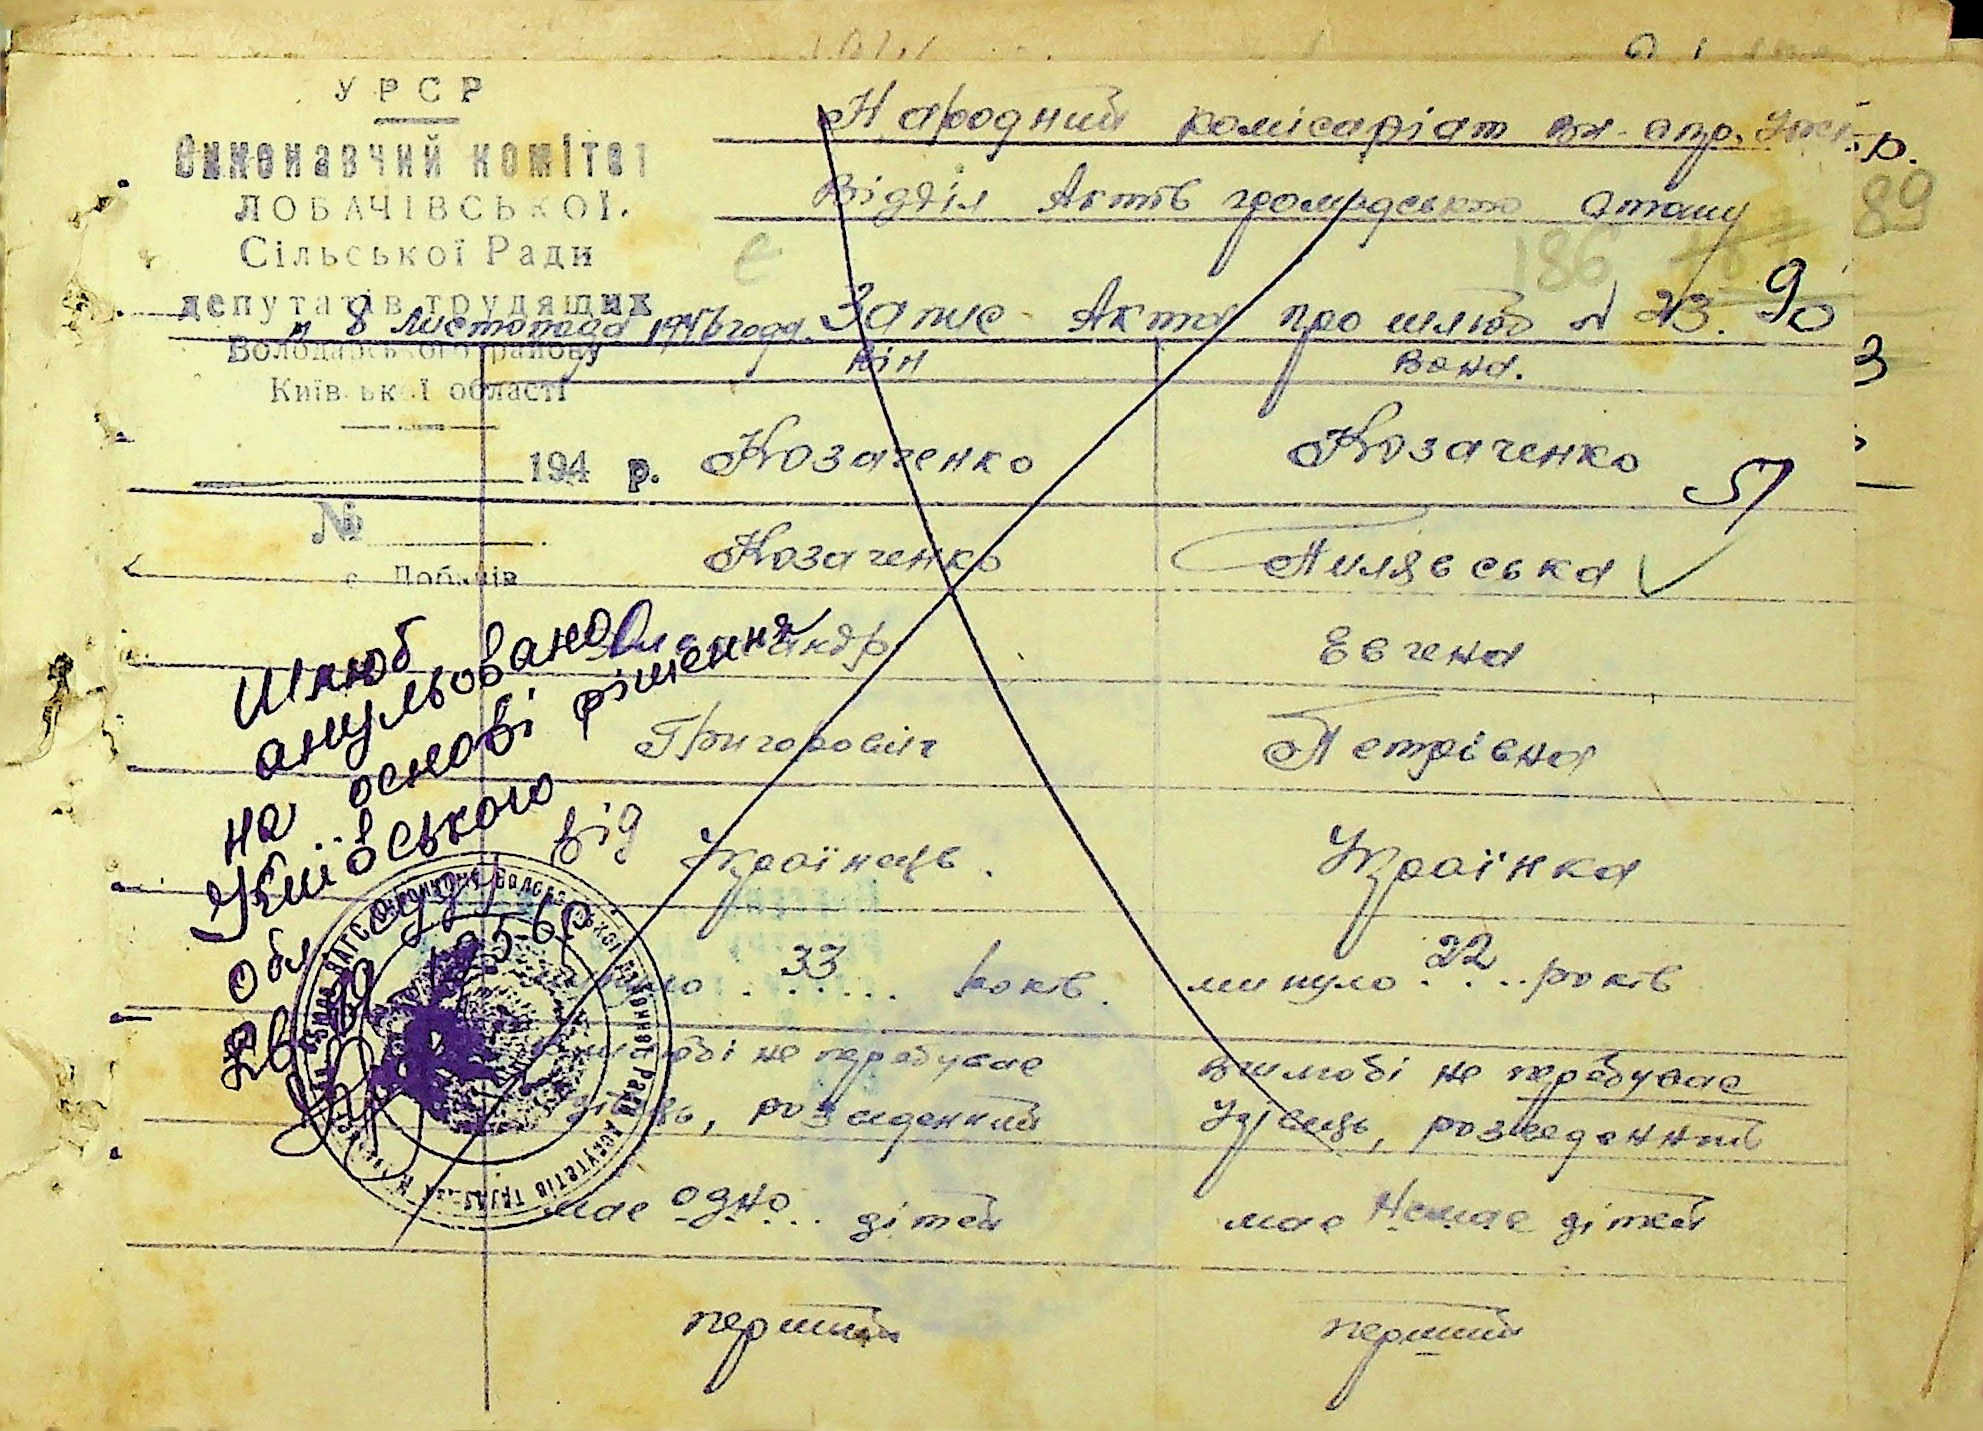 УРСР
Виконавчий комітет
ЛОБАЧІВСЬКОЇ.
Сільської Ради
депутатів трудящих
Володарського району
Київської області
194 р.
№
с. Лобачів
Народний комісаріат вн. спр.
р.
Відділ Актів громадського стану
89
186
8 Листопада 1946 года. Запис Акта про шлюб № 23.
90
він вона.
З
Козаченко Козаченко
51
Козаченко Пилявська
Олександр Евгена
Григоровіч Петрівна
Українець. Українка
минуло . 33 ... років. минуло . 22 . .. років
вшлюбі не перебуває вшлюбі не перебуває
удівець, розведенний Удівець, розведенний
має одно... дітей має Немає дітей
перший перший
Шлюб
анульовано
на основі рішення
Київського
обл суду від
1956р